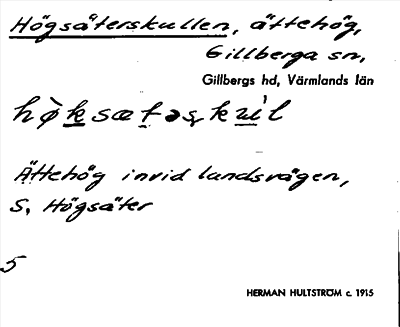 Högsäterskullen, ättehög,
Gillberga sn,
Gillbergs hd, Värmlands län
Ättehög invid landsvägen,
S, Högsäter
5
HERMAN HULTSTRÖM c. 1915